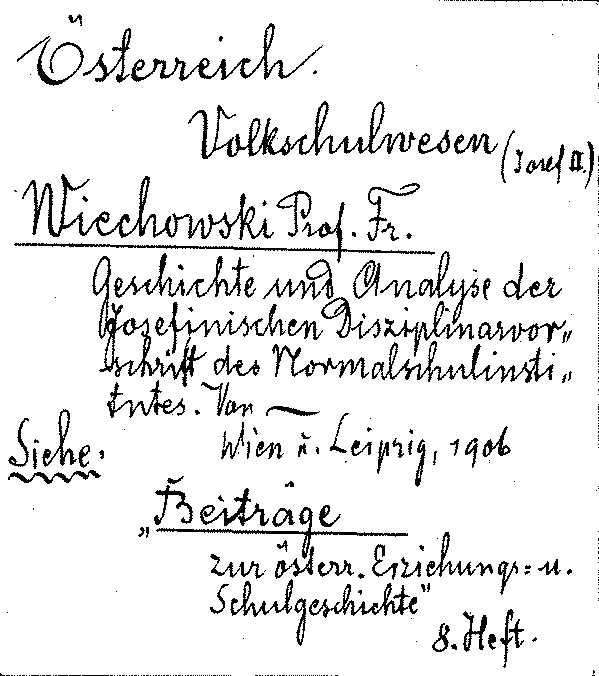 Österreich.
Volkschulwesen (Josef II.)
Wiechowski Prof. Fr.
Geschichte und Analyse der
Josefinischen Disziplinarvor„
schrift des Normalschulinsti„
tutes. Von —
Wien u. Leipzig, 1906
Siehe.
„Beiträge
zur österr. Erziehungs= u.
Schulgeschichte"
8. Heft.